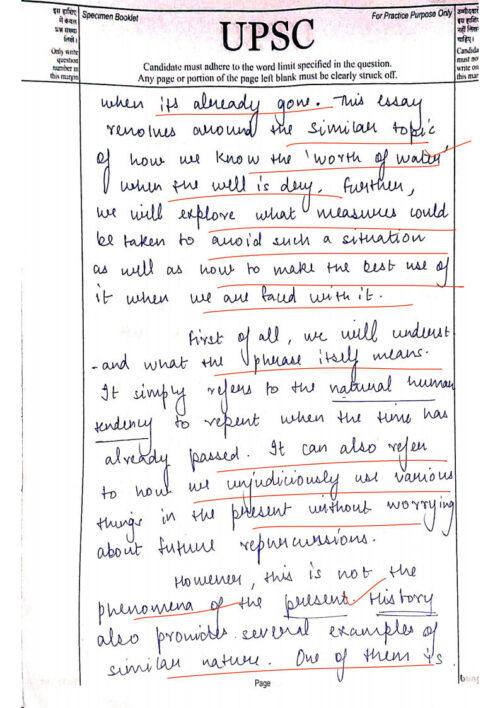 इस हाशिए
में केवल
प्रश्न संख्या
लिखें।
Only write
question
number in
this margin
Specimen Booklet
For Practice Purpose Only
UPSC
Candidate must adhere to the word limit specified in the question.
Any page or portion of the page left blank must be clearly struck off.
उम्मीदवार
इस हाशिए
नहीं लिखना
चाहिए।
Candida
must no
write on
this mar
when its already gone. This essay
revolves around the similar topic
of how we know the 'worth of water'
when the well is dry. Further,
we will explore what measures could
be taken to avoid such a situation
as well as how to make the best use of
it when we are faced with it.
First of all, we will underst-
-and what the phrase itself means.
It simply refers to the natural human
tendency to repent when the time has
already passed. It can also refer
to how we unjudiciously use various
things in the present without worrying
about future repurcussions.
However, this is not the
phenomena of the present. History
also provides several examples of
similar nature. One of them is
Page